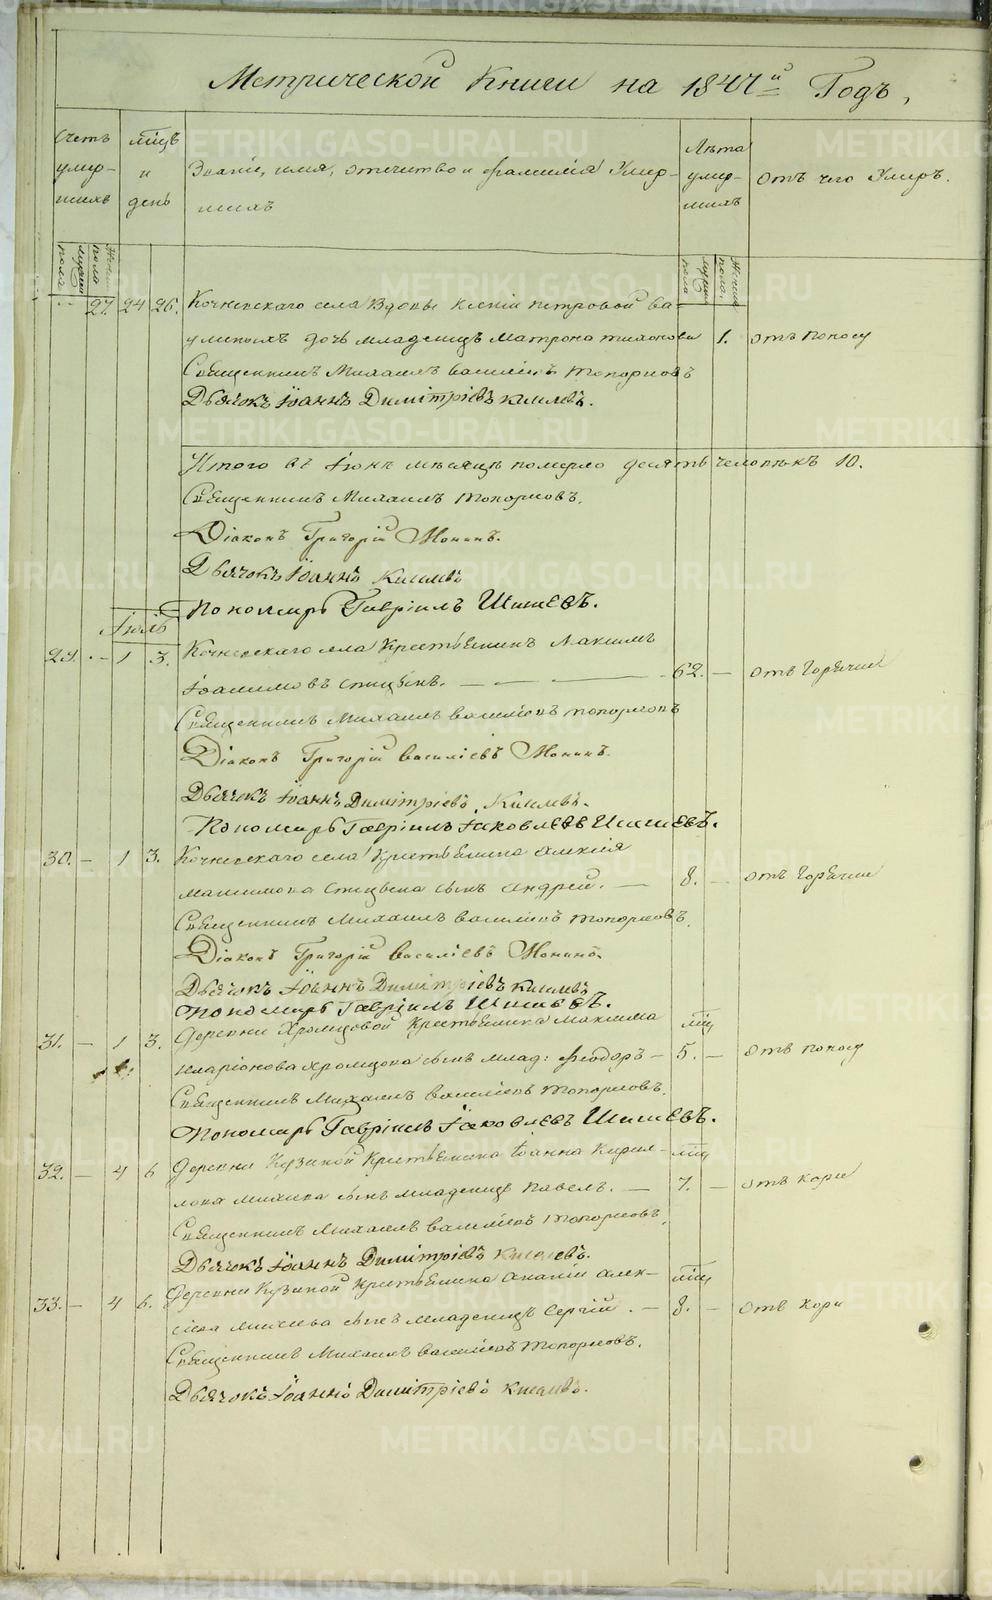 Метрической Книги на 1847й Годъ,
Счетъ умер-шихъ
мѣсяцъ и день
Званіе, имя, отечество и фамилія Умер-
шихъ
Лѣта умер-шихъ
Отъ чего Умеръ.
мужеска пола
женска пола
мужеска пола
женска пола
27. 24 26. Кочневскаго села Вдовы Ксеніи Петровой Ва-
улиныхъ дочь младенецъ Матрона Тихонова 1. отъ поносу
Священникъ Михаилъ Василіевъ Топорковъ
Дьячокъ Іоаннъ Димітріевъ Киселевъ.
Итого въ Іюнѣ мѣсяцѣ померло десять человѣкъ 10.
Священникъ Михаилъ Топорковъ.
Діаконъ Григорій Монинъ.
Дьячокъ Іоаннъ Киселевъ
Пономарь Гавріилъ Шишевъ.
Іюль
29. - 1 3. Кочневскаго села Крестьянинъ Максимъ
Іоакимовъ Спицынъ. 62. - отъ Горячки
Священникъ Михаилъ Василіевъ Топорковъ
Діаконъ Григорій Василіевъ Монинъ.
Дьячокъ Іоаннъ Димітріевъ Киселевъ.
Пономарь Гавріилъ Іаковлевъ Шишевъ.
30. - 1 3. Кочневскаго села Крестьянина Алексія
Максимова Спицына сынъ Андрей. - 8. - отъ Горячки
Священникъ Михаилъ Василіевъ Топорковъ.
Діаконъ Григорій Василіевъ Монинъ.
Дьячокъ Іоаннъ Димітріевъ Киселевъ
Пономарь Гавріилъ Шишевъ.
31. - 1 3. Деревни Хромцовой Крестьянина Максима мѣц
Иларіонова Хромцова сынъ млад: Ѳеодоръ - 5. - отъ поносу
Священникъ Михаилъ Василіевъ Топорковъ.
Пономарь Гавріилъ Іаковлевъ Шишевъ.
32. - 4 6 Деревни Кузиной Крестьянина Іоанна Кирил- мѣц
лова сынъ младенецъ Павелъ. - 7. - отъ кори
Священникъ Михаилъ Василіевъ Топорковъ,
Дьячокъ Іоаннъ Димітріевъ Киселевъ.
33. - 4 6. Деревни Кузиной Крестьянина Ананіи Алек- мѣц
сынъ младенецъ Сергій. - 8. - отъ кори
Священникъ Михаилъ Василіевъ Топорковъ.
Дьячокъ Іоаннъ Димітріевъ Киселевъ.